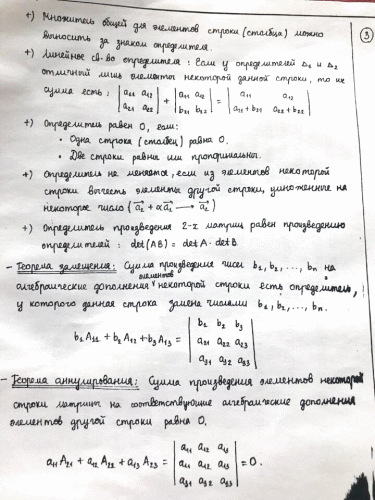 +) Множитель общей для элементов строки (столбца) можно
выносить за знаком определителя.
③
+) Линейное св-во определителя: Если у определителей Δ₁ и Δ₂
отличный лишь элементы некоторой данной строки, то их
сумма есть: |a₁₁ a₁₂; a₂₁ a₂₂| + |a₁₁ a₁₂; b₂₁ b₂₂| = |a₁₁ a₁₂; a₂₁+b₂₁ a₂₂+b₂₂|
+) Определитель равен 0, если:
• Одна строка (столбец) равна 0.
• Две строки равны или пропорциональны.
+) Определитель не меняется, если из элементов некоторой
строки вычесть элементы другой строки, умноженные на
некоторое число (a₂ + αa₁ → a₂)
+) Определитель произведения 2-х матриц равен произведению
определителей: det(AB) = det A · det B.
- Теорема замещения: Сумма произведения чисел b₁, b₂, ..., bₙ на
алгебраические дополнения элементов некоторой строки есть определитель,
у которого данная строка замена числами b₁, b₂, ..., bₙ.
b₁A₁₁ + b₂A₁₂ + b₃A₁₃ = |b₁ b₂ b₃; a₂₁ a₂₂ a₂₃; a₃₁ a₃₂ a₃₃|
- Теорема аннулирования: Сумма произведения элементов некоторой
строки матрицы на соответствующие алгебраические дополнения
элементов другой строки равна 0.
a₁₁A₂₁ + a₁₂A₂₂ + a₁₃A₂₃ = |a₁₁ a₁₂ a₁₃; a₁₁ a₁₂ a₁₃; a₃₁ a₃₂ a₃₃| = 0.